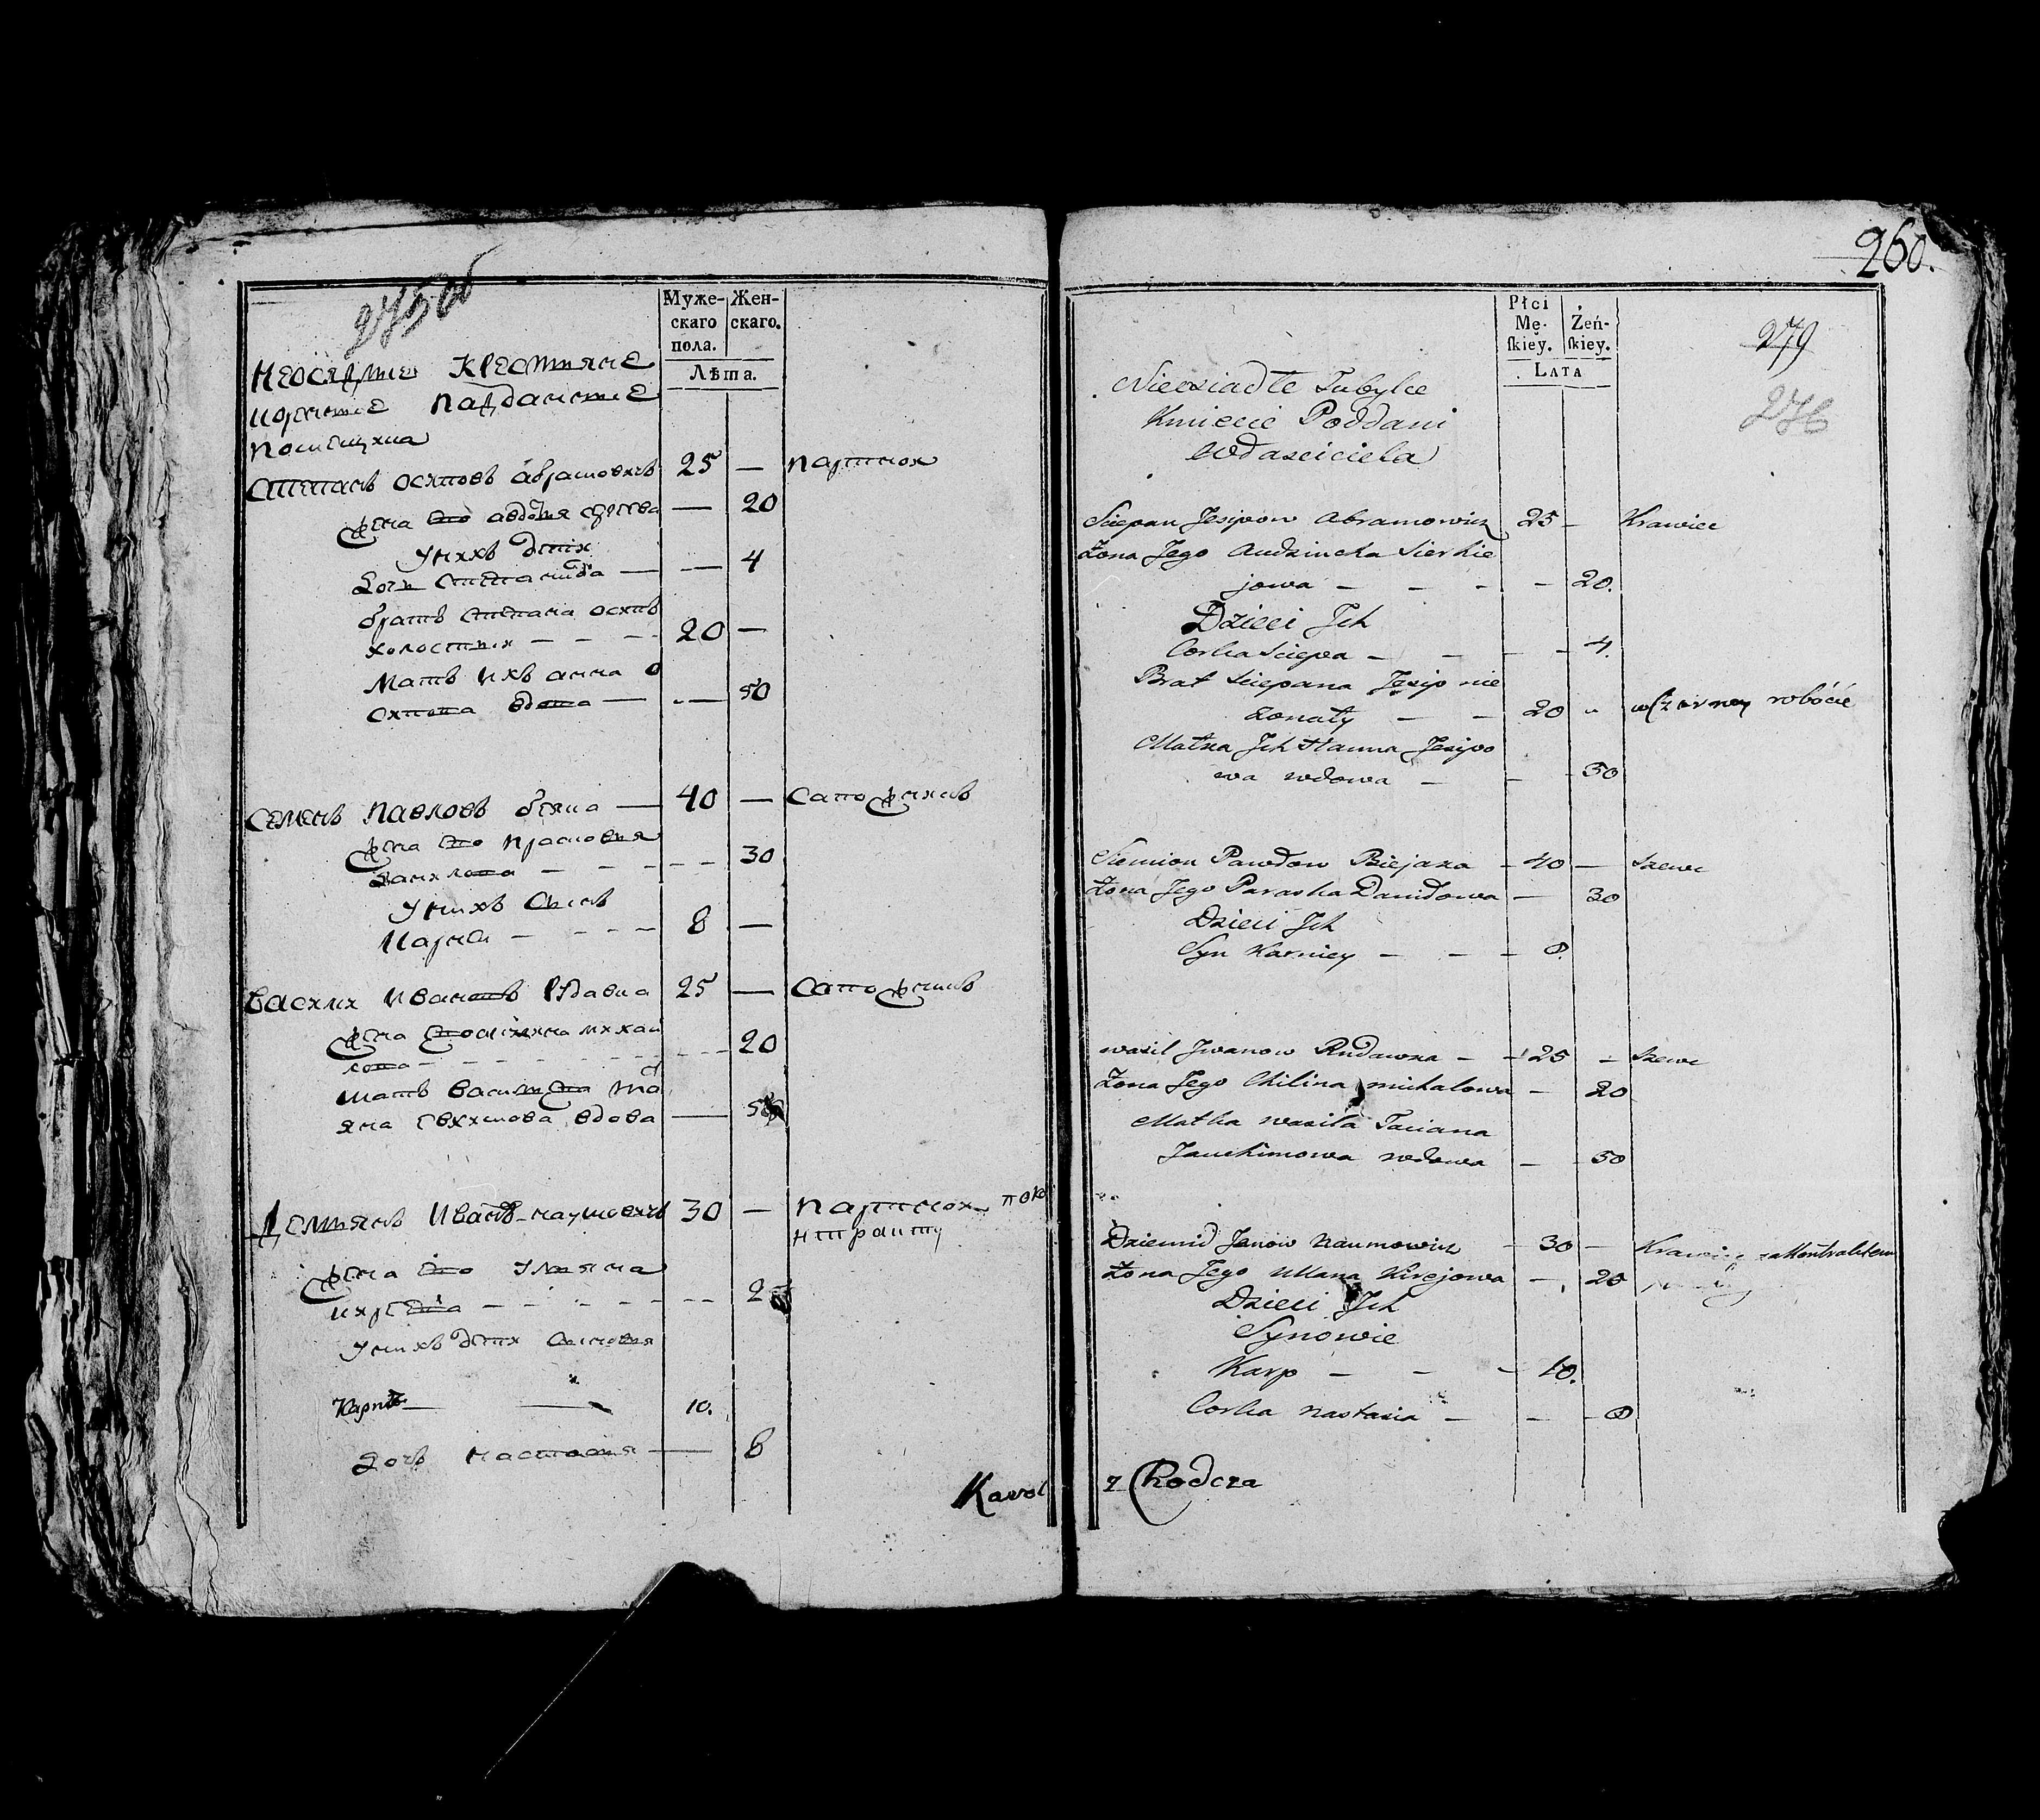 275 об
Муже-
скаго
пола.
Жен-
скаго.
Лѣта.
Неоселые крестяне
подданые
Помещика
Степанъ осиповъ абрамовичъ 25 — партной
жена его авдотя — 20
у нихъ дети
дочь — — 4
братъ степана осипъ
холостый - - - - 20 —
мать ихъ анна о
сипова вдова — - — 50
семенъ павловъ бѣяка — 40 — сапожникъ
жена его прасковия
данилова - - - - - - 30
у нихъ сынъ
- - - - 8 —
василий ивановъ рудавка 25 — сапожникъ
жена его михай
лова - - - - - - - - 20
мать василия та
яна вдова — 50
Демянъ ивановъ наумовичъ 30 — партной по ко
нтракту
жена его уляна
кирѣева - - - - - - - 2
у нихъ дети сыновя
Карпъ — — 10.
дочь настасия — 8
Karol
260.
279
276
Płci
Mę-
ſkiey.
Żeń-
ſkiey.
Lata
Nieosiadłe Tubylce
Kmiecie Poddani
Właściciela
Sciepan Jesipow Abramowicz 25 — Krawiec
Żona Jego Audzincha Sierhie
jowa — - - - 20.
Dzieci Jch
Corka Sciepa — - - - 4.
Brat Sciepana Jesip nie
żonaty — - 20 " w Czarney robocie
Matka Jch Hanna Jesipo
wa wdowa — - - 50
Siemion Pawłow Biejaka - 40 — Szewc
Żona Jego Paraska Daniłowa — 30
Dzieci Jch
Syn Karniey — - - 8.
wasil Jwanow Rudawka - - 25 - Szewc
Żona Jego Chilina michałowa — 20
Matka wasila Taciana
Jauchimowa wdowa — - 50
Dziemid Janow Naumowicz - 30 — Krawiec za Kontraktem
Żona Jego Ullana Kirejowa —, 20
Dzieci Jch
Synowie
Karp — - - 10.
Corka Nastazia — - - 8
z Chodcza